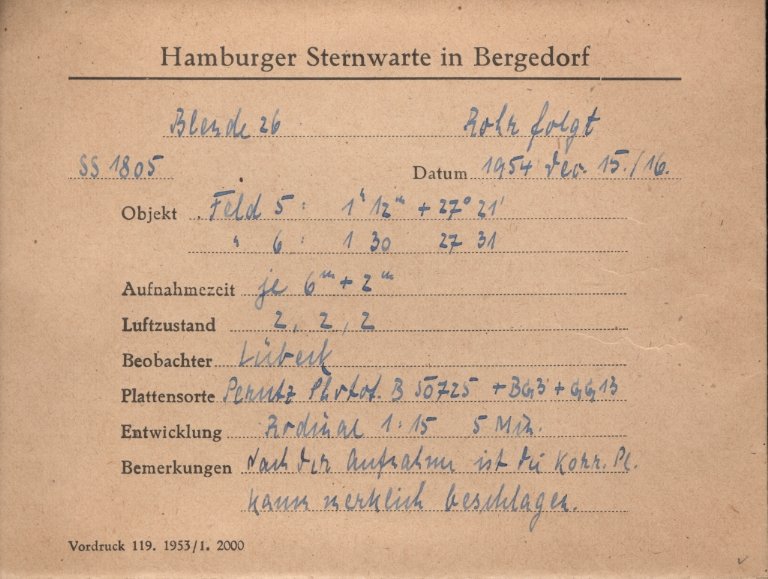 Hamburger Sternwarte in Bergedorf
Blende 26 Rohr folgt
SS 1805 Datum 1954 Dez. 15./16.
Objekt Feld 5 : 1ʰ 12ᵐ + 27° 21'
" 6 : 1 30 27 31
Aufnahmezeit je 6ᵐ + 2ᵐ
Luftzustand 2, 2, 2
Beobachter Lübeck
Plattensorte Perutz Phototh. B 50725 + BG3 + GG13
Entwicklung Rodinal 1:15 5 Min.
Bemerkungen Nach der Aufnahme ist die Korr. Pl.
kaum merklich beschlagen.
Vordruck 119. 1953/1. 2000